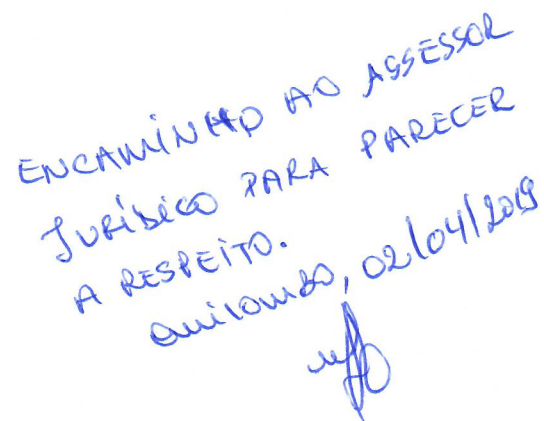 ENCAMINHO AO ASSESSOR
JURÍDICO PARA PARECER
A RESPEITO.
Quilombo, 02/04/2019